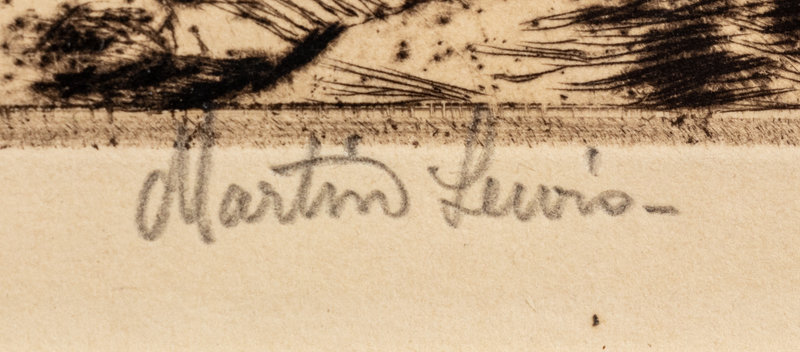 Martin Lewis-